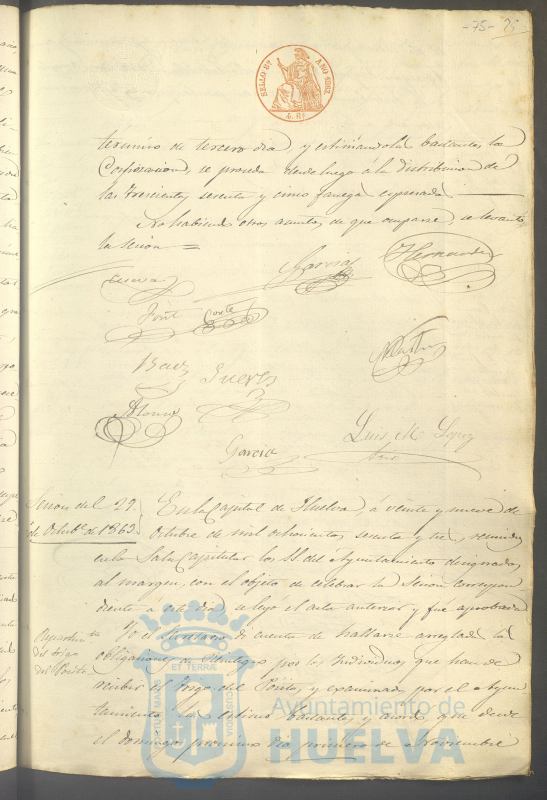 -75- 75
SELLO 8º AÑO 1863.
4. Rs
termino de tercero dia y estimándola bastantes, la
Corporacion, se proceda desde luego á la distribucion de
las trescientas sesenta y cinco fanegas espresadas
No habiendo otros asuntos de que ocuparse, se levantó
la Sesion =
Garcia Hernandez
Cueva
Font Corte
Baez Jueves
Alonso
Garcia Luis M. Lopez
Srio
Sesion del 29
de Octubre de 1863.
En la Capital de Huelva, á veinte y nueve de
Octubre de mil ochocientos sesenta y tres, reunidos
en la Sala Capitular los SS. del Ayuntamiento designados
al margen, con el objeto de celebrar la Sesion correspon
diente á este dia, se leyó el acta anterior y fue aprobada
Repartimto
del trigo
del Pósito
Yo el Secretario dí cuenta de hallarse arregladas las
obligaciones de Reintegro por los Individuos que han de
recibir el trigo del Pósito, y examinadas por el Ayun
tamiento, las estimó bastantes y acordó que desde
el domingo proximo dia primero de Noviembre
Ayuntamiento de
HUELVA
PORTUS MARIS ET TERRAE CUSTODIA